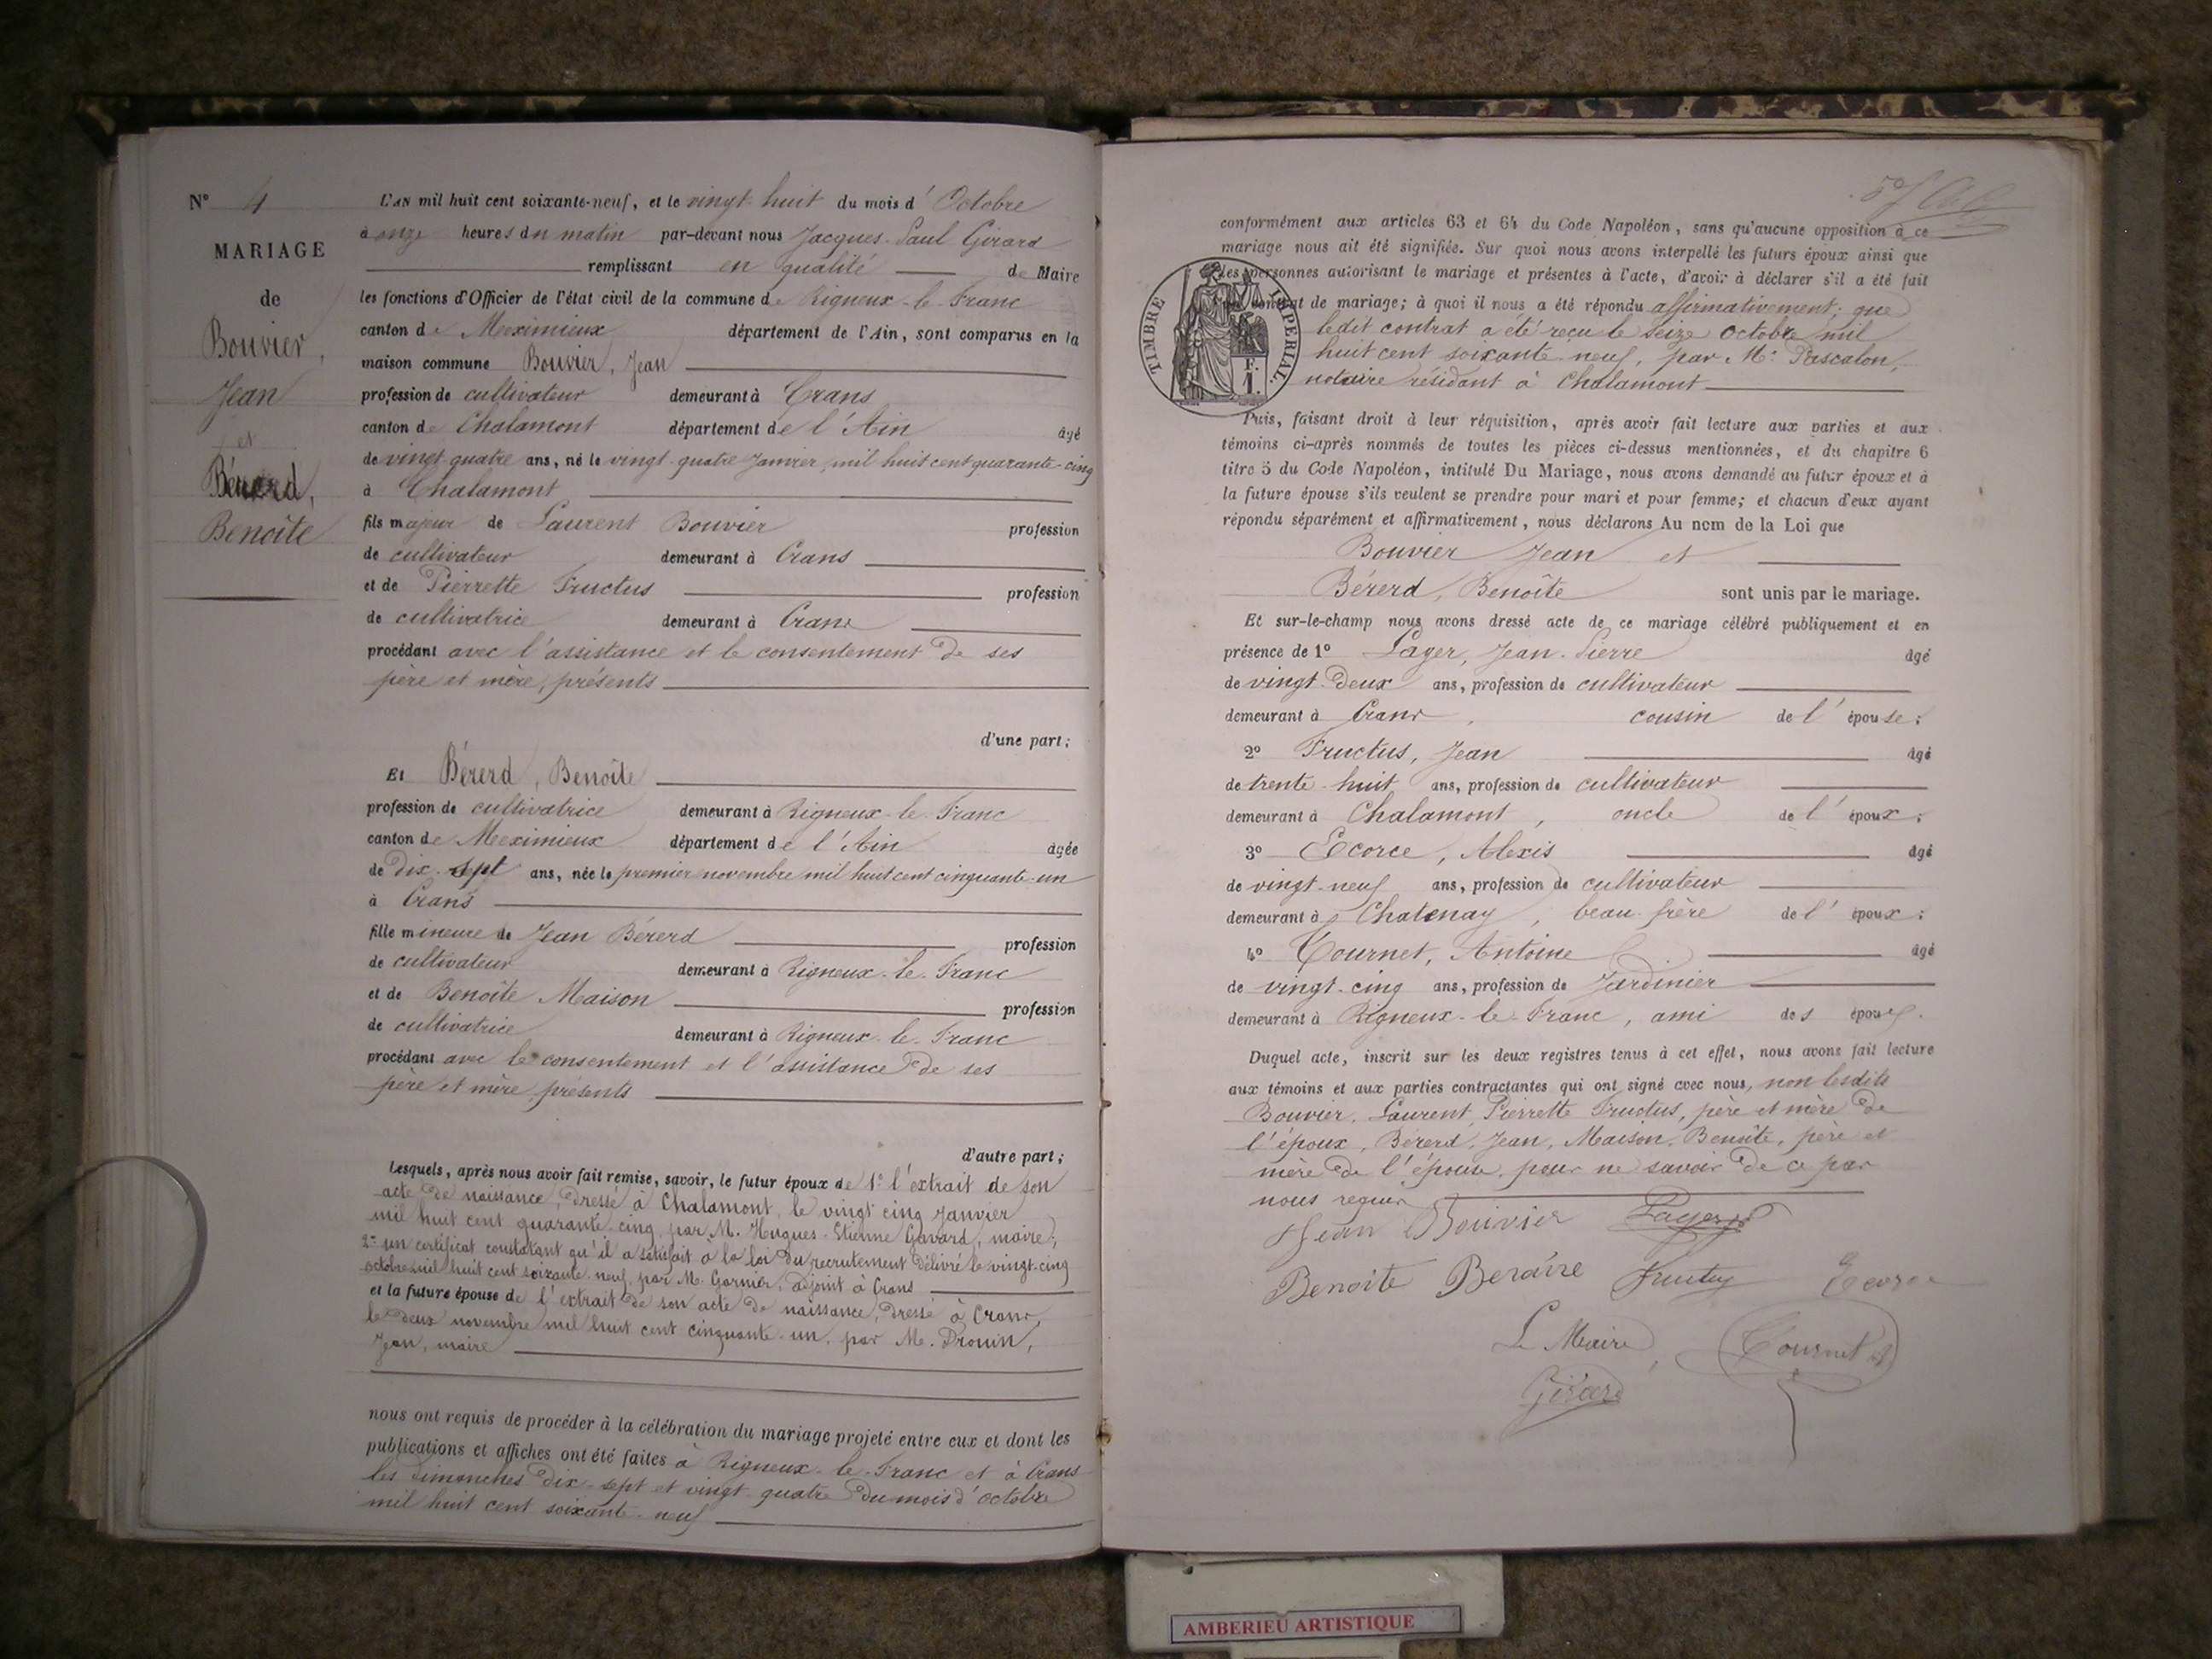 N° 4
MARIAGE
de
Bouvier,
Jean
et
Bérerd,
Benoîte
L'AN mil huit cent soixante-neuf, et le vingt-huit du mois d'Octobre
à onze heures du matin par-devant nous Jacques-Paul Girard
remplissant en qualité de Maire
les fonctions d'Officier de l'état civil de la commune de Rigneux-le-Franc
canton de Meximieux département de l'Ain, sont comparus en la
maison commune Bouvier, Jean
profession de cultivateur demeurant à Crans
canton de Chalamont département de l'Ain âgé
de vingt-quatre ans, né le vingt-quatre Janvier, mil huit cent quarante-cinq
à Chalamont
fils majeur de Laurent Bouvier profession
de cultivateur demeurant à Crans
et de Pierrette Fructus profession
de cultivatrice demeurant à Crans
procédant avec l'assistance et le consentement de ses
père et mère, présents
d'une part;
Et Bérerd, Benoîte
profession de cultivatrice demeurant à Rigneux-le-Franc
canton de Meximieux département de l'Ain âgée
de dix-sept ans, née le premier novembre mil huit cent cinquante-un
à Crans
fille mineure de Jean Bérerd profession
de cultivateur demeurant à Rigneux-le-Franc
et de Benoîte Maison profession
de cultivatrice demeurant à Rigneux-le-Franc
procédant avec le consentement et l'assistance de ses
père et mère présents
d'autre part;
Lesquels, après nous avoir fait remise, savoir, le futur époux de 1° l'extrait de son
acte de naissance, dressé à Chalamont, le vingt cinq janvier
mil huit cent quarante-cinq, par M. Hugues-Etienne Gavard, maire;
2° un certificat constatant qu'il a satisfait à la loi du recrutement délivré le vingt-cinq
octobre mil huit cent soixante-neuf, par M. Garnier, adjoint à Crans
et la future épouse de l'extrait de son acte de naissance, dressé à Crans,
le deux novembre mil huit cent cinquante-un, par M. Drouin,
Jean, maire
nous ont requis de procéder à la célébration du mariage projeté entre eux et dont les
publications et affiches ont été faites à Rigneux-le-Franc et à Crans
les dimanches dix-sept et vingt-quatre du mois d'octobre
mil huit cent soixante-neuf
conformément aux articles 63 et 64 du Code Napoléon, sans qu'aucune opposition à ce
mariage nous ait été signifiée. Sur quoi nous avons interpellé les futurs époux ainsi que
les personnes autorisant le mariage et présentes à l'acte, d'avoir à déclarer s'il a été fait
contrat de mariage; à quoi il nous a été répondu affirmativement; que
ledit contrat a été reçu le seize octobre mil
huit cent soixante-neuf, par Me Pascalon,
notaire résidant à Chalamont
TIMBRE IMPERIAL.
F.
1.
Puis, faisant droit à leur réquisition, après avoir fait lecture aux parties et aux
témoins ci-après nommés de toutes les pièces ci-dessus mentionnées, et du chapitre 6
titre 5 du Code Napoléon, intitulé Du Mariage, nous avons demandé au futur époux et à
la future épouse s'ils veulent se prendre pour mari et pour femme; et chacun d'eux ayant
répondu séparément et affirmativement, nous déclarons Au nom de la Loi que
Bouvier Jean et
Bérerd, Benoîte sont unis par le mariage.
Et sur-le-champ nous avons dressé acte de ce mariage célébré publiquement et en
présence de 1° Lager, Jean-Pierre âgé
de vingt-deux ans, profession de cultivateur
demeurant à Crans, cousin de l'épouse;
2° Fructus, Jean âgé
de trente-huit ans, profession de cultivateur
demeurant à Chalamont, oncle de l'époux;
3° Ecorce, Alexis âgé
de vingt-neuf ans, profession de cultivateur
demeurant à Chatenay, beau-frère de l'époux;
4° Tournet, Antoine âgé
de vingt-cinq ans, profession de Jardinier
demeurant à Rigneux-le-Franc, ami des époux.
Duquel acte, inscrit sur les deux registres tenus à cet effet, nous avons fait lecture
aux témoins et aux parties contractantes qui ont signé avec nous, non lesdits
Bouvier, Laurent, Pierrette Fructus, père et mère de
l'époux, Bérerd, Jean, Maison, Benoîte, père et
mère de l'épouse, pour ne savoir de ce par
nous requis
Jean Bouvier Lager
Benoîte Beraire Fructus Ecorce
Le Maire Tournet A
Girard
AMBERIEU ARTISTIQUE